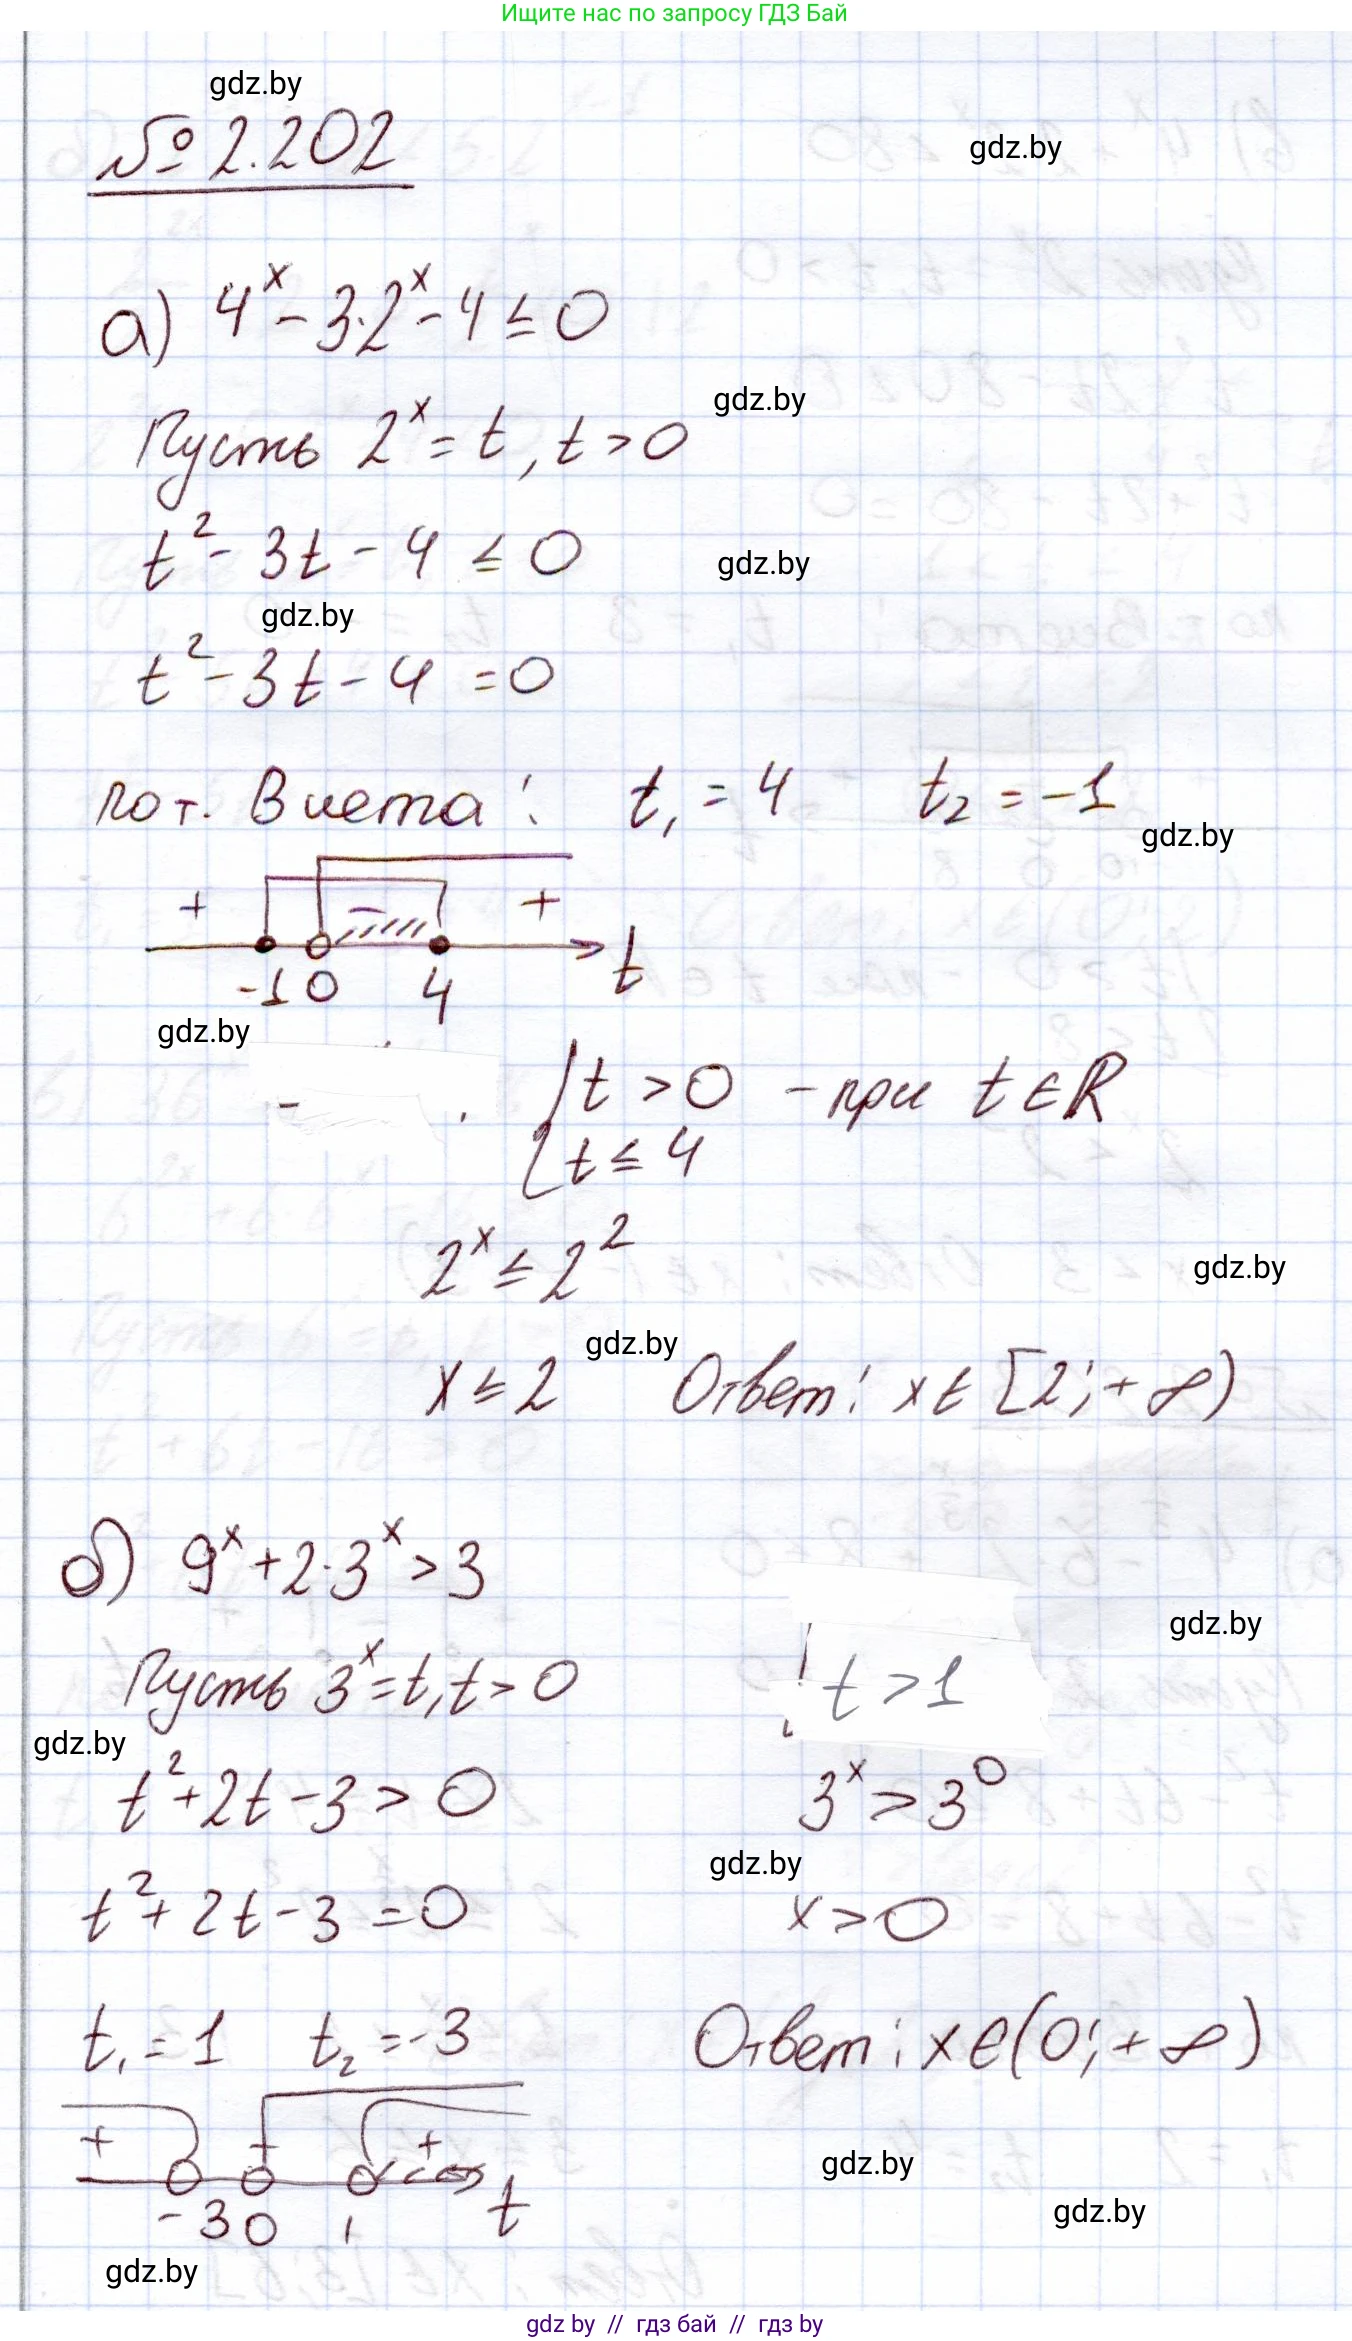 Ищите нас по запросу ГДЗ Бай
gdz.by
№ 2.202
gdz.by
а) 4^x - 3·2^x - 4 ≤ 0
gdz.by
Пусть 2^x = t, t > 0
t^2 - 3t - 4 ≤ 0
gdz.by
gdz.by
t^2 - 3t - 4 = 0
по т. Виета: t_1 = 4 t_2 = -1
gdz.by
+ - +
-1 0 4 t
gdz.by
{ t > 0 - при t ∈ R
{ t ≤ 4
2^x ≤ 2^2
gdz.by
gdz.by
x ≤ 2 Ответ: x ∈ [2; + ∞)
б) 9^x + 2·3^x > 3
gdz.by
Пусть 3^x = t, t > 0
t > 1
gdz.by
t^2 + 2t - 3 > 0
3^x > 3^0
gdz.by
t^2 + 2t - 3 = 0
x > 0
t_1 = 1 t_2 = -3
Ответ: x ∈ (0; + ∞)
+ - +
-3 0 1 t
gdz.by
gdz.by
gdz.by
gdz by // гдз бай // гдз by